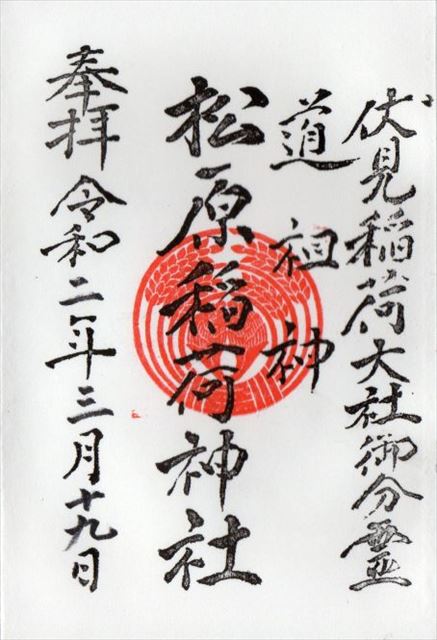 伏見稲荷大社御分霊
道祖神
松原稲荷神社
奉拝 令和二年三月十九日